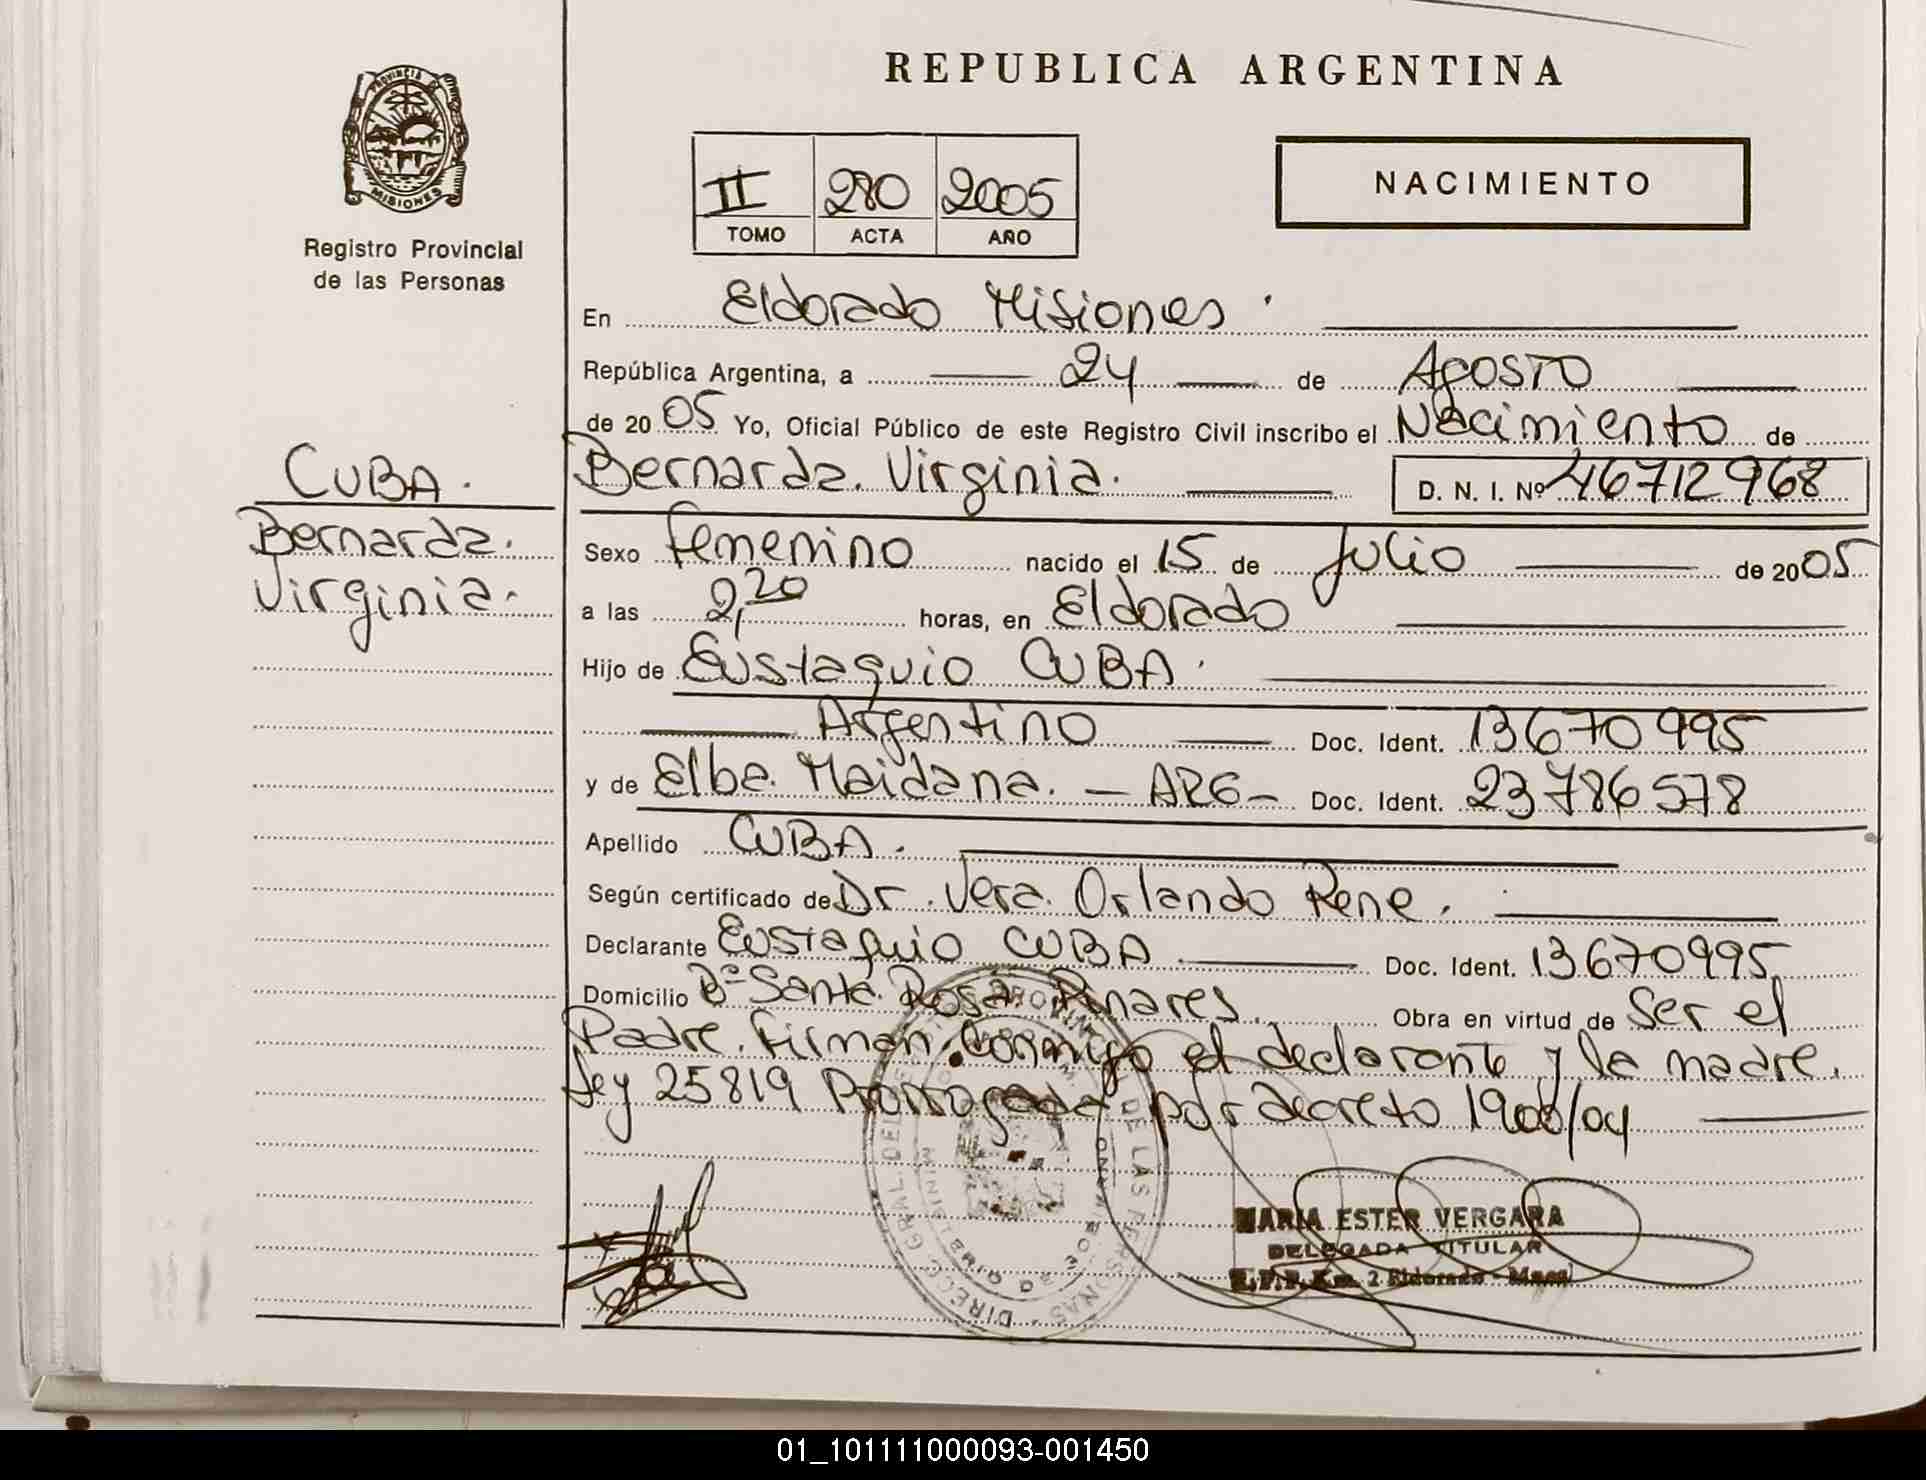 PROVINCIA
MISIONES
Registro Provincial
de las Personas
REPUBLICA ARGENTINA
II 280 2005
TOMO ACTA AÑO
NACIMIENTO
En Eldorado Misiones.
República Argentina, a 24 de Agosto
de 2005 Yo, Oficial Público de este Registro Civil inscribo el Nacimiento de
Bernarda Virginia. D. N. I. Nº 46712968
CUBA.
Bernarda.
Virginia.
Sexo femenino nacido el 15 de Julio de 2005
a las 2,20 horas, en Eldorado
Hijo de Eustaquio CUBA.
Argentino Doc. Ident. 13670995
y de Elba Maidana. - ARG - Doc. Ident. 23786578
Apellido CUBA.
Según certificado de Dr. Vera Orlando Rene.
Declarante Eustaquio CUBA Doc. Ident. 13670995
Domicilio Bº Santa Rosa Pinares Obra en virtud de Ser el
Padre. Firman Conmigo el declarante y la madre.
Ley 25819 Prorrogada por decreto 1900/04
MARIA ESTER VERGARA
DELEGADA TITULAR
R.P.P. Km. 2 Eldorado - Mnes
01_101111000093-001450